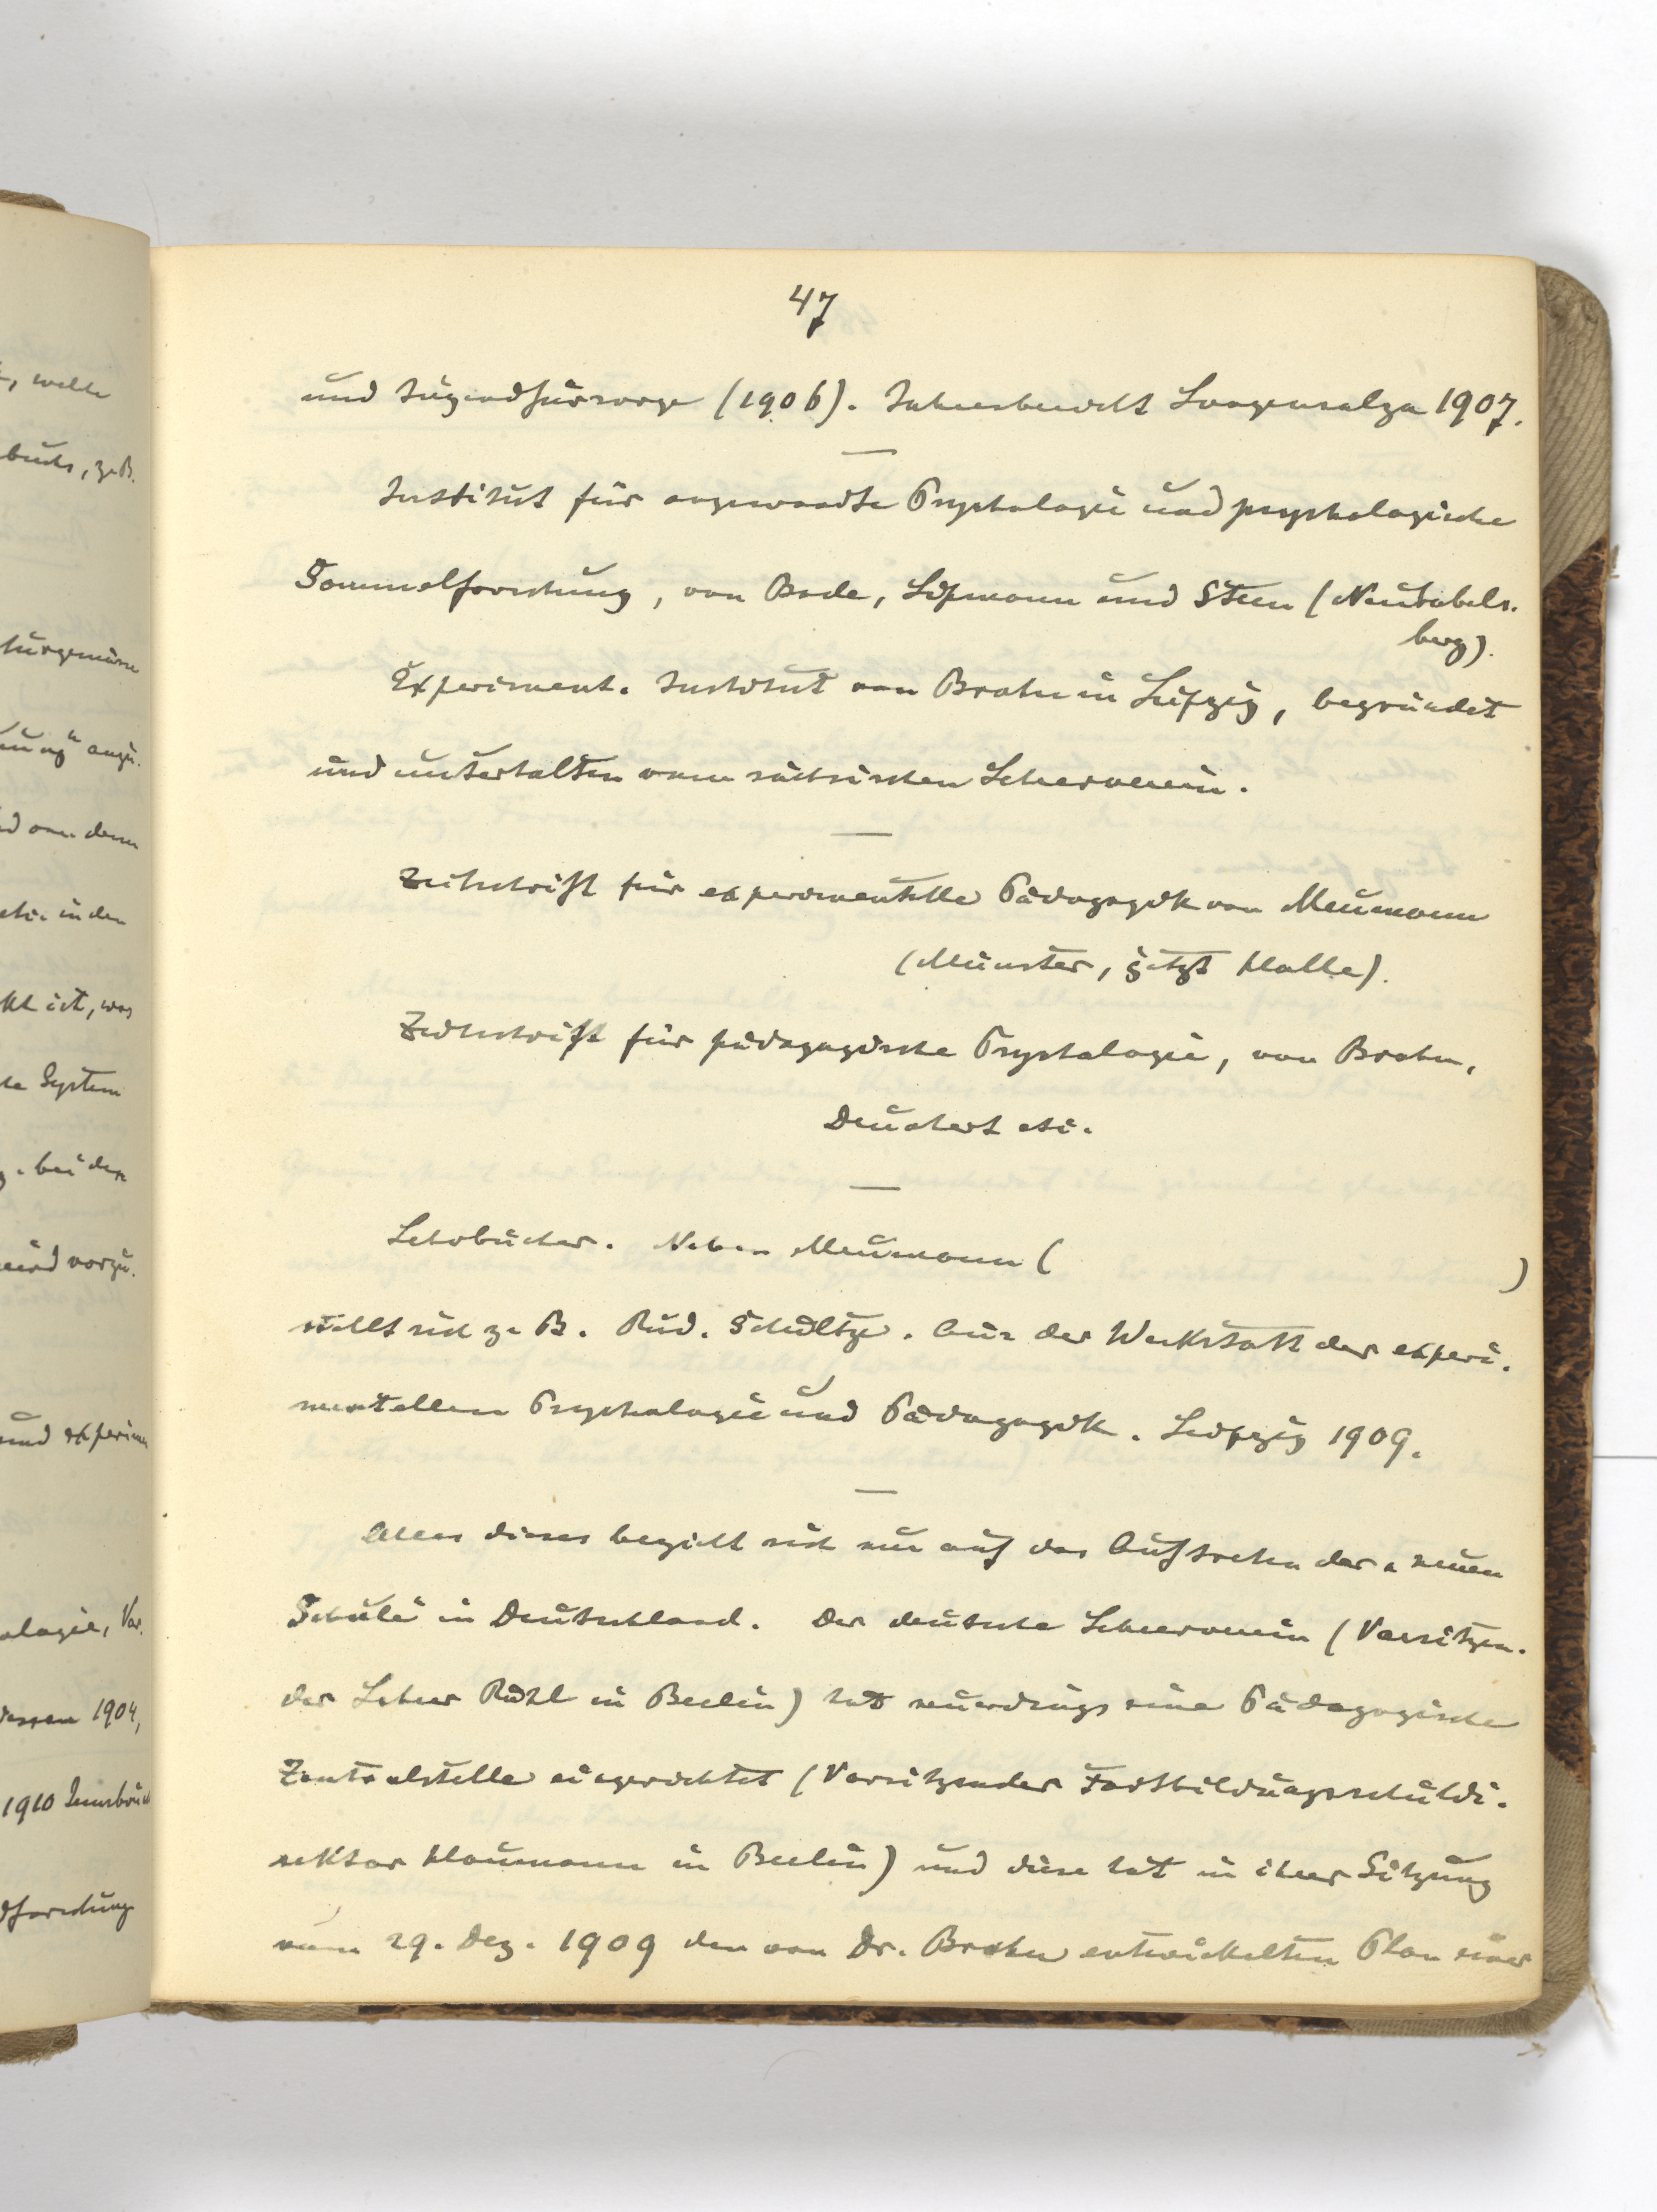 47
und Jugendfürsorge (1906). Jahresbericht Langensalza 1907.
Institut für angewandte Psychologie und psychologische
Sammelforschung, von Bode, Lipmann und Stern (Neubabels-
berg).
Experiment. Institut von Brahn in Leipzig, begründet
und unterhalten vom sächsischen Lehrerverein.
Zeitschrift für experimentelle Pädagogik von Meumann
(Münster, jetzt Halle).
Zeitschrift für pädagogische Psychologie, von Brahn,
Deuchert etc.
Lehrbücher. Neben Meumann ( )
stellt sich z. B. Rud. Schultze. Aus der Werkstatt der experi-
mentellen Psychologie und Pädagogik. Leipzig 1909.
Alles dieses bezieht sich nur auf das Auftreten der neuen
Schule in Deutschland. Der deutsche Lehrerverein (Vorsitzen-
der Lehrer Röhl in Berlin) hat neuerdings eine Pädagogische
Zentralstelle eingerichtet (Vorsitzender Fortbildungsschuldi-
rektor Haumann in Berlin) und diese hat in ihrer Sitzung
vom 29. Dez. 1909 den von Dr. Brahn entwickelten Plan einer
, welche
buchs, z. B.
ung" anzu-
und von dem
etc. in den
ckt ist, was
System
bei der
vorzu-
und experimen
ologie, Vor-
1904,
1910 Innsbruck
dforschung